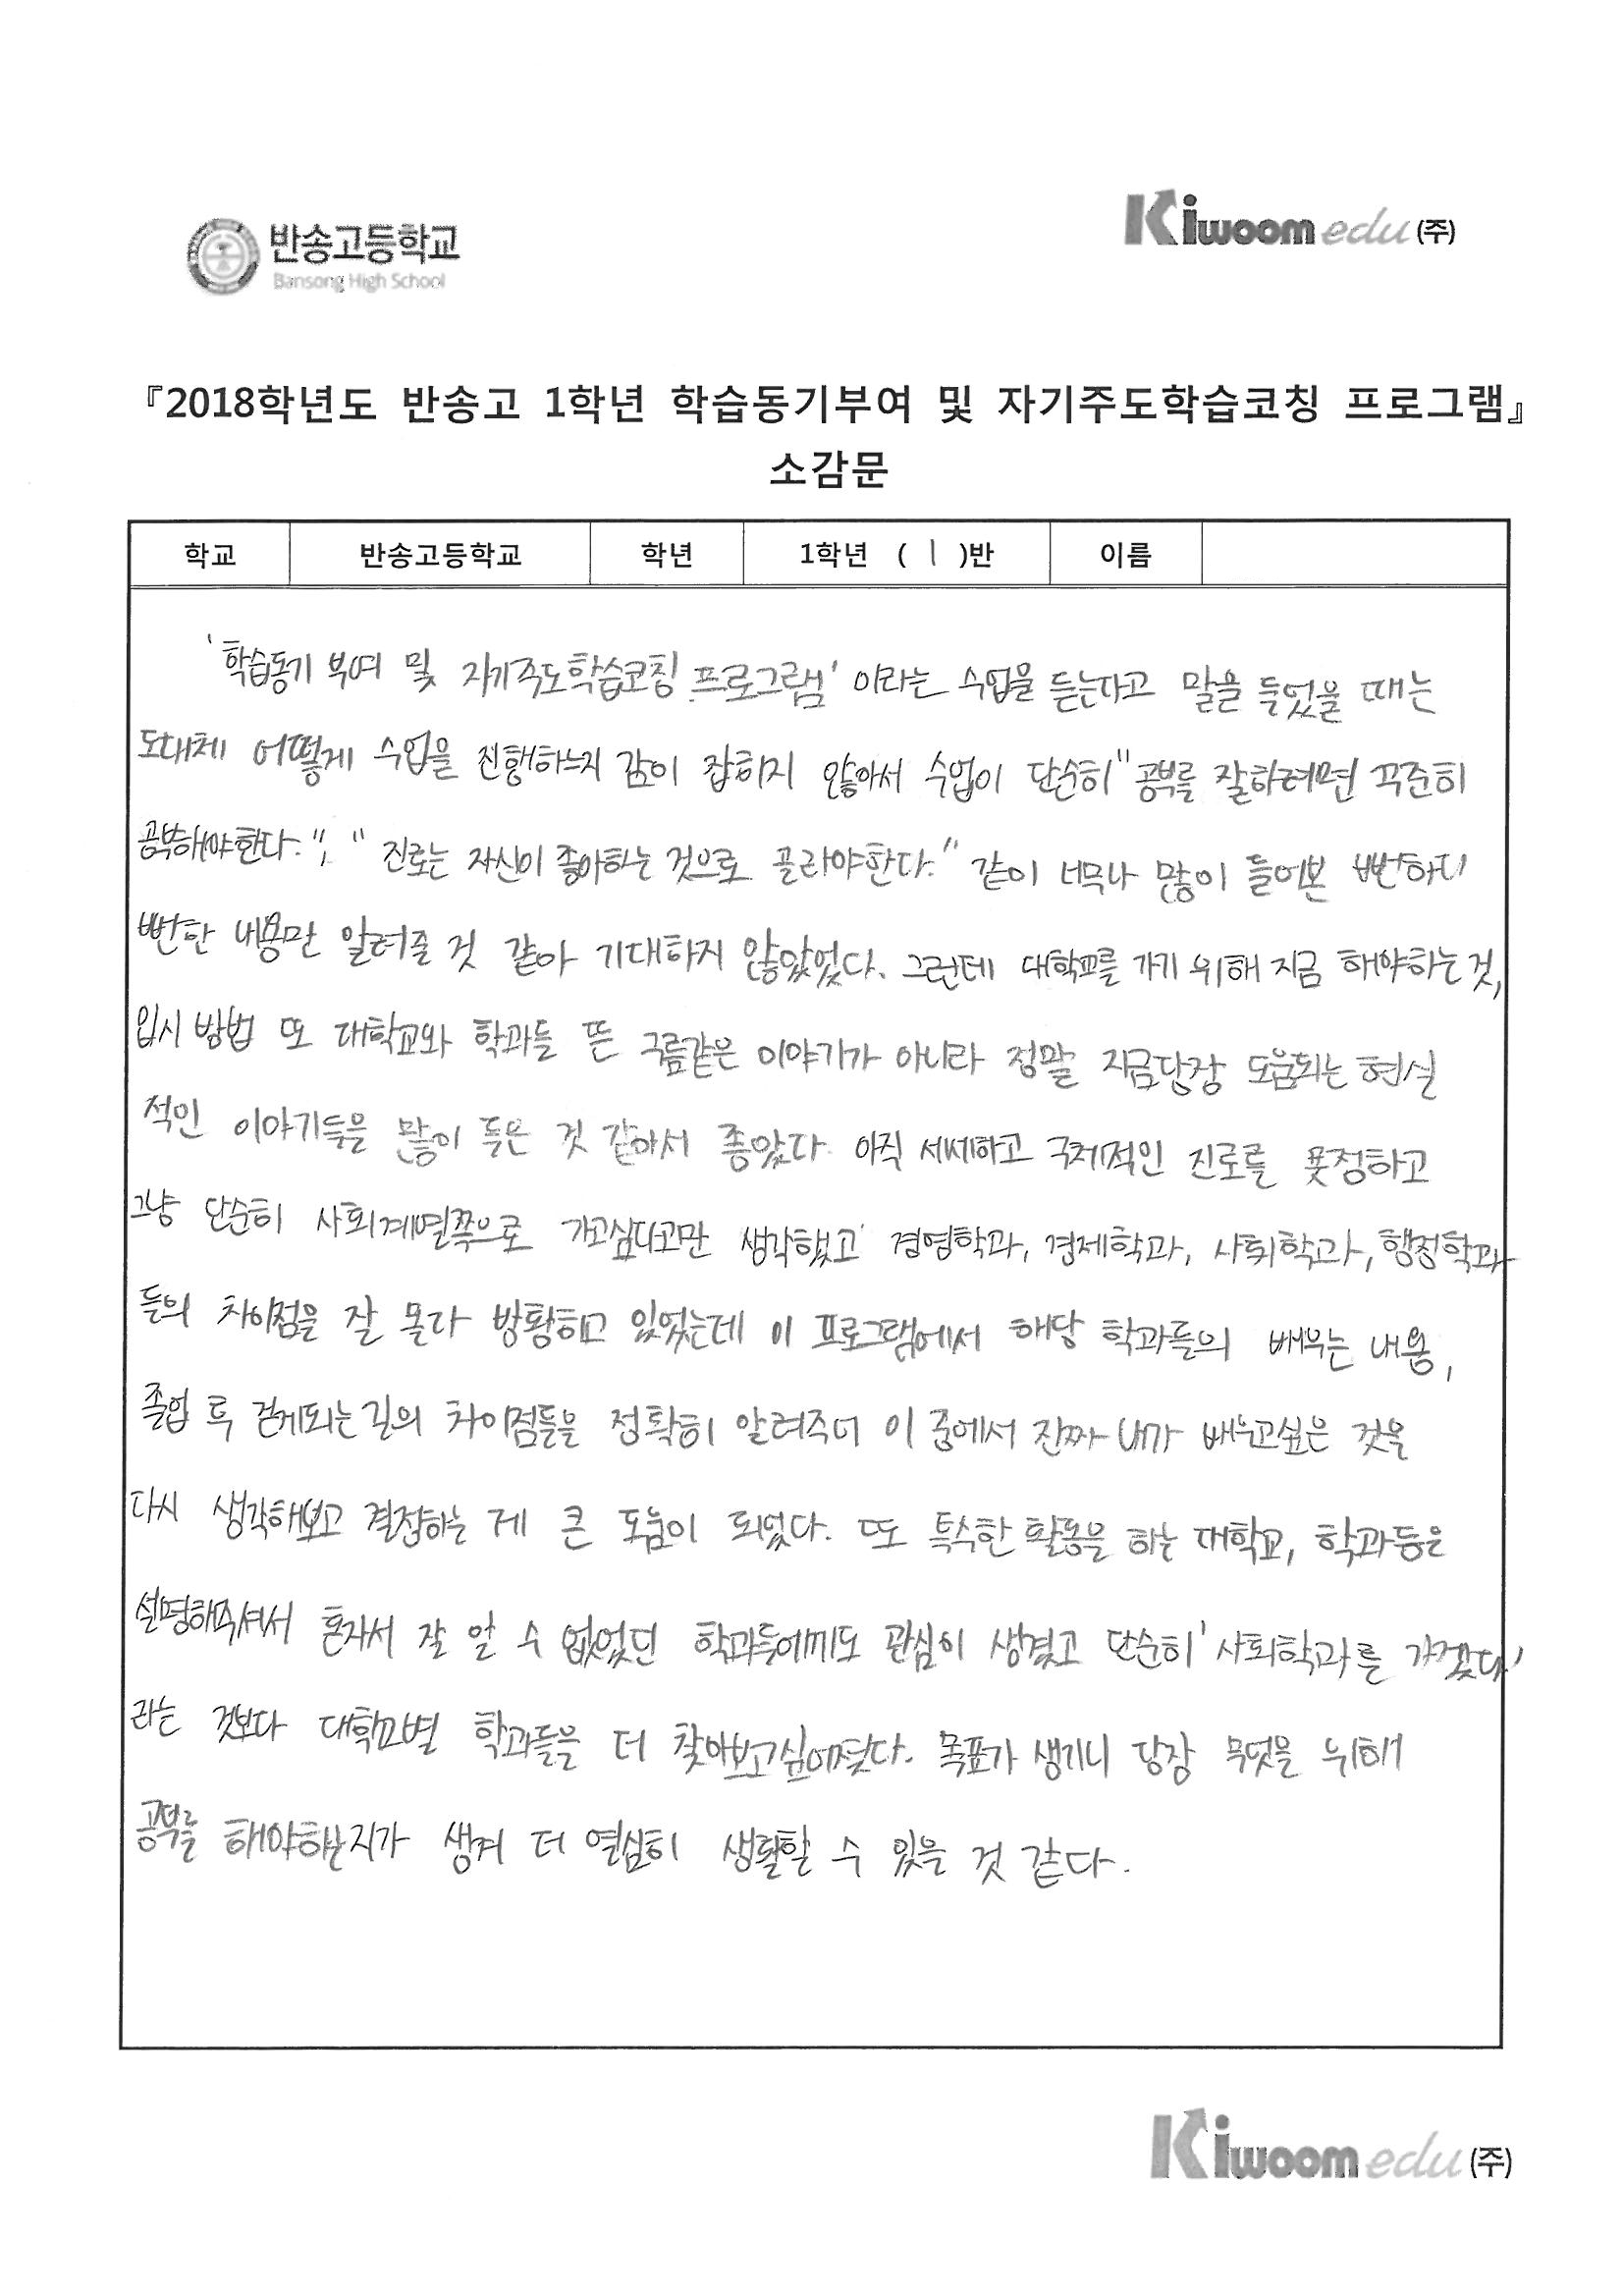 반송고등학교
Bansong High School
Kiwoom edu (주)
『2018학년도 반송고 1학년 학습동기부여 및 자기주도학습코칭 프로그램』
소감문
학교 반송고등학교 학년 1학년 ( 1 )반 이름
'학습동기 부여 및 자기주도학습코칭 프로그램' 이라는 수업을 듣는다고 말을 들었을 때는
도대체 어떻게 수업을 진행하는지 감이 잡히지 않아서 수업이 단순히 "공부를 잘하려면 꾸준히
공부해야한다.", "진로는 자신이 좋아하는 것으로 골라야한다." 같이 너무나 많이 들어본 뻔하디
뻔한 내용만 알려줄 것 같아 기대하지 않았었다. 그런데 대학교를 가기 위해 지금 해야하는 것,
입시 방법 또 대학교와 학과들 뜬 구름같은 이야기가 아니라 정말 지금당장 도움되는 현실
적인 이야기들을 많이 들은 것 같아서 좋았다. 아직 세세하고 구체적인 진로를 못정하고
그냥 단순히 사회계열쪽으로 가고싶다고만 생각했고 경영학과, 경제학과, 사회학과, 행정학과
들의 차이점을 잘 몰라 방황하고 있었는데 이 프로그램에서 해당 학과들의 배우는 내용,
졸업 후 걷게되는 길의 차이점들을 정확히 알려주너 이 중에서 진짜 내가 배우고싶은 것을
다시 생각해보고 결정하는 게 큰 도움이 되었다. 또 특수한 활동을 하는 대학교, 학과등을
설명해주셔서 혼자서 잘 알 수 없었던 학과들에게도 관심이 생겼고 단순히 '사회학과를 가겠다'
라는 것보다 대학교별 학과들을 더 찾아보고싶어졌다. 목표가 생기니 당장 무엇을 위해
공부를 해야하는지가 생겨 더 열심히 생활할 수 있을 것 같다.
Kiwoom edu (주)